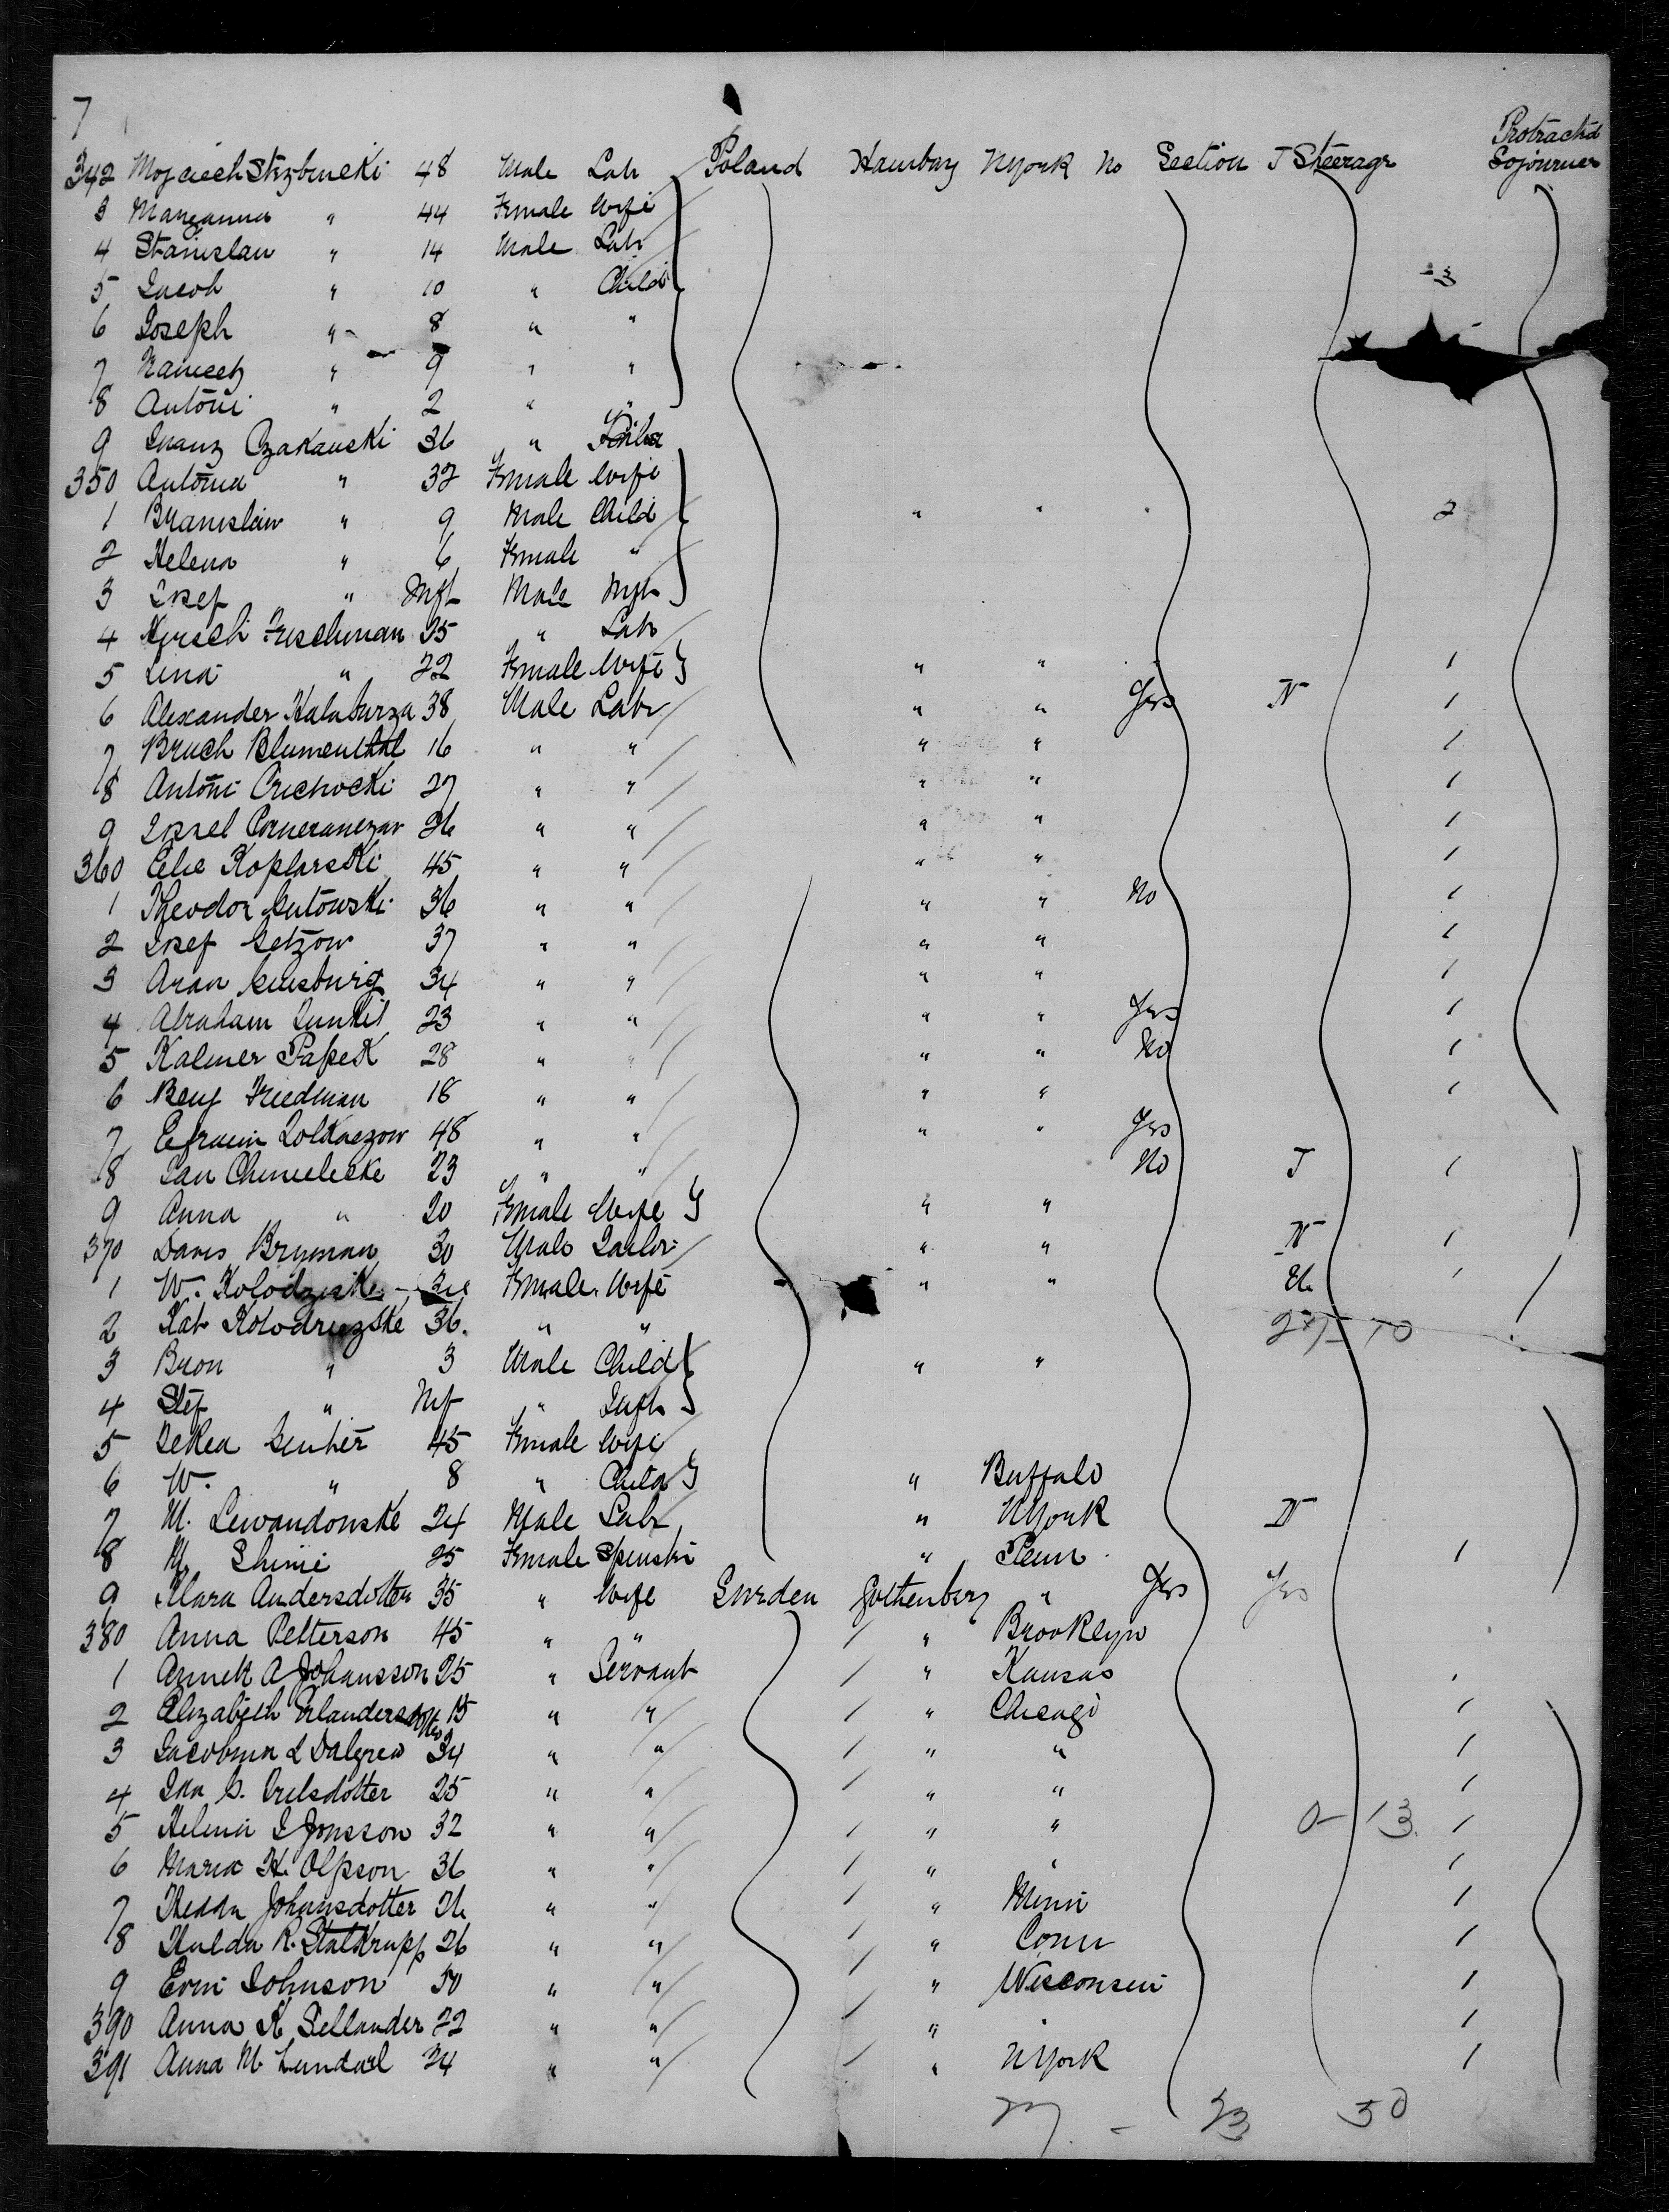 7
Protract'd
342 Mojciech Strzbincki 48 Male Labr Poland Hamburg NYork No Section J Steerage Sojourner
3 Maryanna " 44 Female Wife
4 Stanislau " 14 Male Labr
5 Jacob " 10 " Child 3
6 Joseph " 8 " "
7 " 9 " "
8 Antoni " 2 " "
9 Franz Czakauski 36 "
350 Antonia " 32 Female Wife
1 Branislaw " 9 Male Child " " 2
2 Helena " 6 Female "
3 Josef " Inft Male Inft
4 Hersch Frischman 25 " Labr
5 Lina " 22 Female Wife " " 1
6 Alexander Kalaburza 38 Male Labr " " Yes N 1
7 Bruch Blumenthal 16 " " " " 1
8 Antoni 27 " " " " 1
9 Israel 26 " " " " 1
360 Elie Koplarski 45 " " " " 1
1 Theodor Gutowski 36 " " " " No 1
2 Josef Getzow 37 " " " " 1
3 Aran Ginsburg 34 " " " " 1
4 Abraham 23 " " " " Yes 1
5 Kalmer Papek 28 " " " " No 1
6 Benj Friedman 18 " " " " 1
7 Efraim Zolkaczow 48 " " " " Yes
8 Jan Chmielecke 23 " " No J 1
9 Anna " 20 Female Wife " "
370 Davis Bryman 30 Male Tailor " " N 1
1 W. Kolodziske Female Wife " " 1
2 Kat Kolodruzske 36. " "
3 Bron " 3 Male Child " "
4 Stef " Inf " Inft
5 Gunther 45 Female Wife
6 W. " 8 " Child " Buffalo
7 M. Lewandonske 24 Male Labr " NYork N
8 M. 25 Female Spinstr " Penn 1
9 Klara Andersdotter 35 " Wife Sweden Gothenberg " Yes Yes
380 Anna Petterson 45 " " / " Brooklyn
1 A Johansson 25 " Servant / " Kansas
2 Elizabeth Erlandersdotter 15 " " / " Chicago 1
3 Jacobina L Dalgren 24 " " / " " 1
4 Ida 25 " " / " " 1
5 Helena S Jonsson 32 " " / " " 0-13. 1
6 Maria H. Olfson 36 " " / " " 1
7 Hedda Johansdotter 26 " " / " Minn 1
8 Hulda R. Stalkrupp 26 " " / " Conn 1
9 Johnson " " / " Wisconsin 1
390 Anna K Sellander 22 " " / " " 1
391 Anna M Lundarl 24 " " / " NYork 1
- 23 50